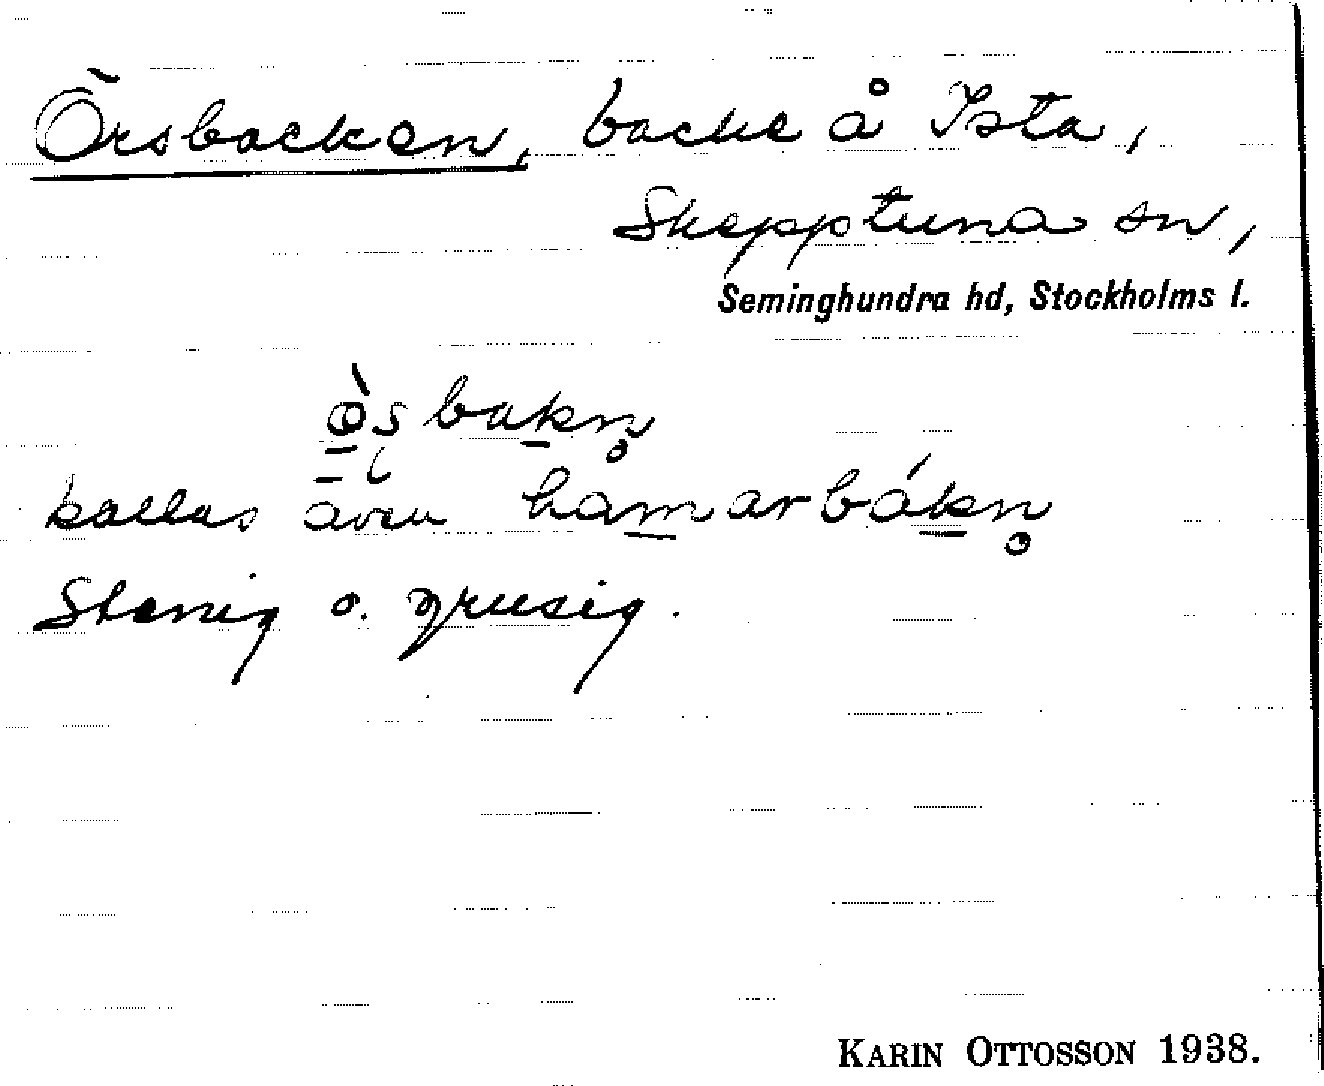 Örsbacken, backe å Ista,
Skepptuna sn,
Seminghundra hd, Stockholms l.
ø̀ʂbakn̥
kallas även hamarbákn̥
Stenig o. grusig.
KARIN OTTOSSON 1938.